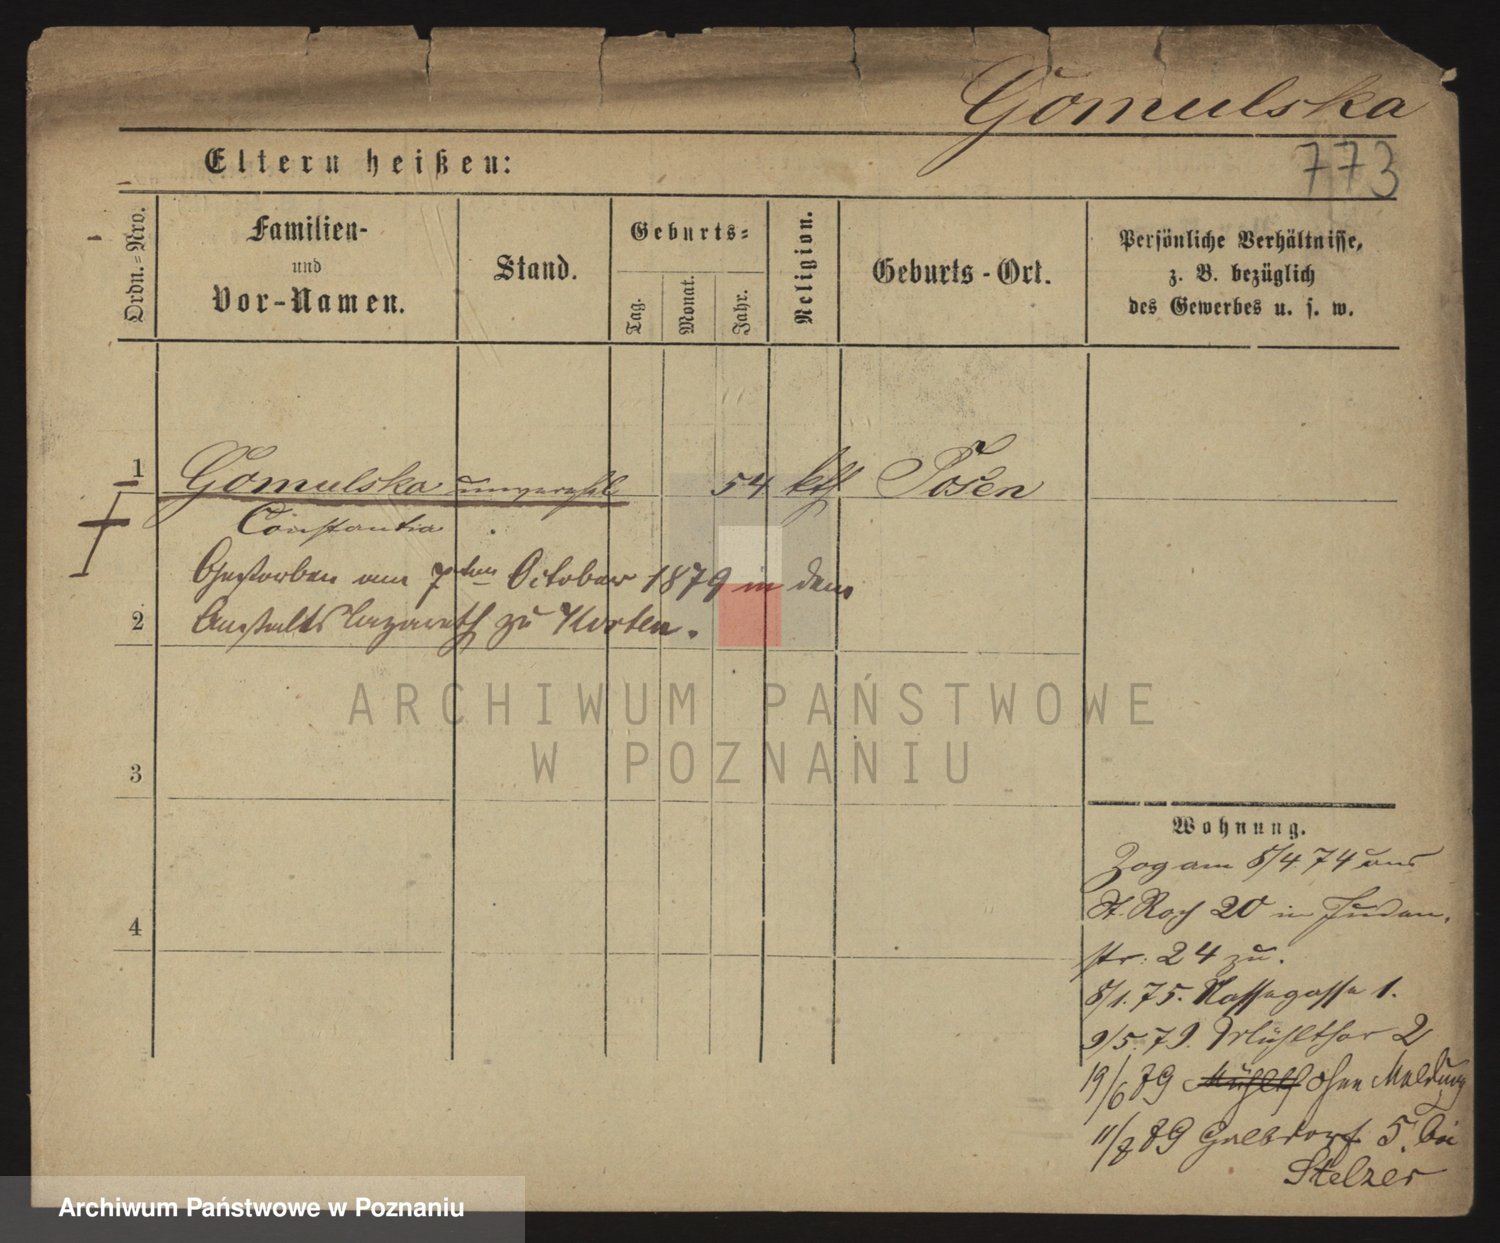 Gomulska
773
Eltern heißen:
Ordn.=Nro.
Familien-
und
Vor-Namen.
Stand.
Geburts=
Tag.
Monat.
Jahr.
Religion.
Geburts-Ort.
Persönliche Verhältnisse,
z. B. bezüglich
des Gewerbes u. s. w.
1 Gomulska unverehel 54 kth Posen
Constantia
Gestorben am 7ten October 1879 in dem
2 Anstalts Lazareth zu Kosten.
ARCHIWUM PAŃSTWOWE
W POZNANIU
3
4
Wohnung.
Zog am 5/4 74 aus
St. Roch 20 in Juden
str: 24 zu.
5/1. 75. Nassegasse 1.
9/5. 79. Mühlthor 2
19/6 79 Mühlth ohne Meldung
11/7 79 5. bei
Stelzer
Archiwum Państwowe w Poznaniu